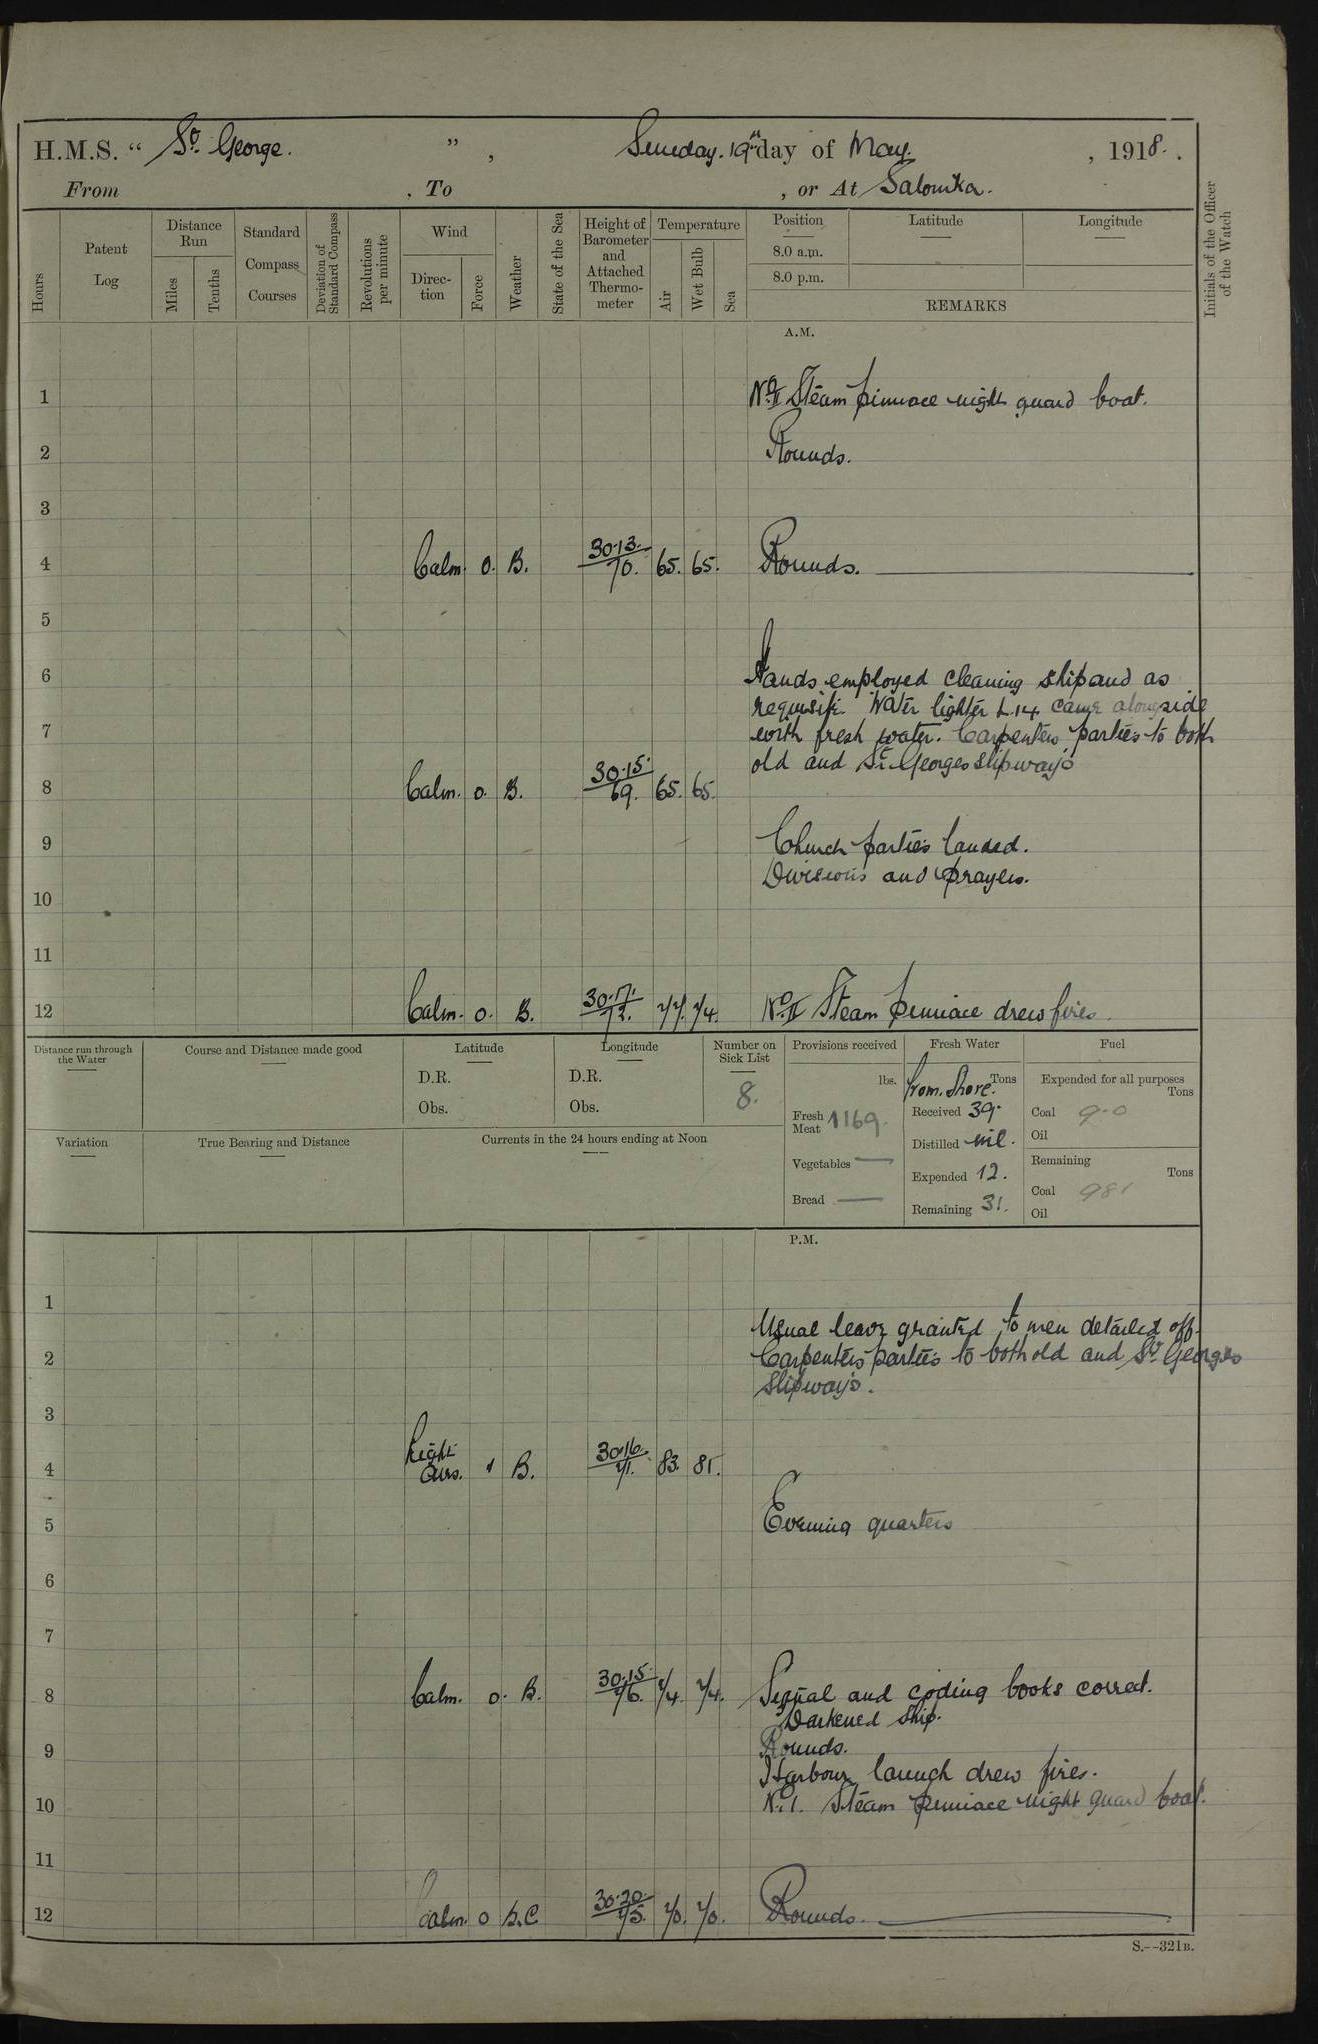 H.M.S. “ St. George. ” , Sunday. 19th day of May. , 1918. .
From , To , or At Salonika.
Hours
Patent Log
Distance Run
Miles
Tenths
Standard Compass Courses
Deviation of Standard Compass
Revolutions per minute
Wind
Direc-tion
Force
Weather
State of the Sea
Height of Barometer and Attached Thermo-meter
Temperature
Air
Wet Bulb
Sea
Position
8.0 a.m.
8.0 p.m.
Latitude
Longitude
REMARKS
Initials of the Officer of the Watch
A.M.
1 No. II Steam pinnace night guard boat.
2 Rounds.
3
4 Calm. 0. B. 30.13. 70. 65. 65. Rounds.
5
6 Hands employed cleaning ship and as
requisite. Water lighter L.14 came alongside
7 with fresh water. Carpenters parties to both
old and St. Georges slipways
8 Calm. 0. B. 30.15. 69. 65. 65.
9 Church parties landed.
Divisions and prayers.
10
11
12 Calm. 0. B. 30.17. 72. 77. 74. No. II Steam pinnace drew fires.
Distance run through the Water
Course and Distance made good
Latitude
D.R.
Obs.
Longitude
D.R.
Obs.
Number on Sick List
8.
Provisions received
lbs.
Fresh Meat 1169.
Vegetables —
Bread —
Fresh Water
from. Shore. Tons
Received 39.
Distilled nil.
Expended 12.
Remaining 31.
Fuel
Expended for all purposes
Tons
Coal 9.0
Oil
Remaining
Tons
Coal 981
Oil
Variation
True Bearing and Distance
Currents in the 24 hours ending at Noon
P.M.
1
Usual leave granted to men detailed off.
2 Carpenters parties to both old and St. Georges
slipways.
3
4 Light airs. 1 B. 30.16. 71. 83. 81.
5 Evening quarters
6
7
8 Calm. 0. B. 30.15. 76. 74. 74. Signal and coding books correct.
Darkened ship.
9 Rounds.
Harbour launch drew fires.
10 No. 1. Steam pinnace night guard boat.
11
12 Calm. 0 B.C 30.20. 75. 70. 70. Rounds.
S.--321B.